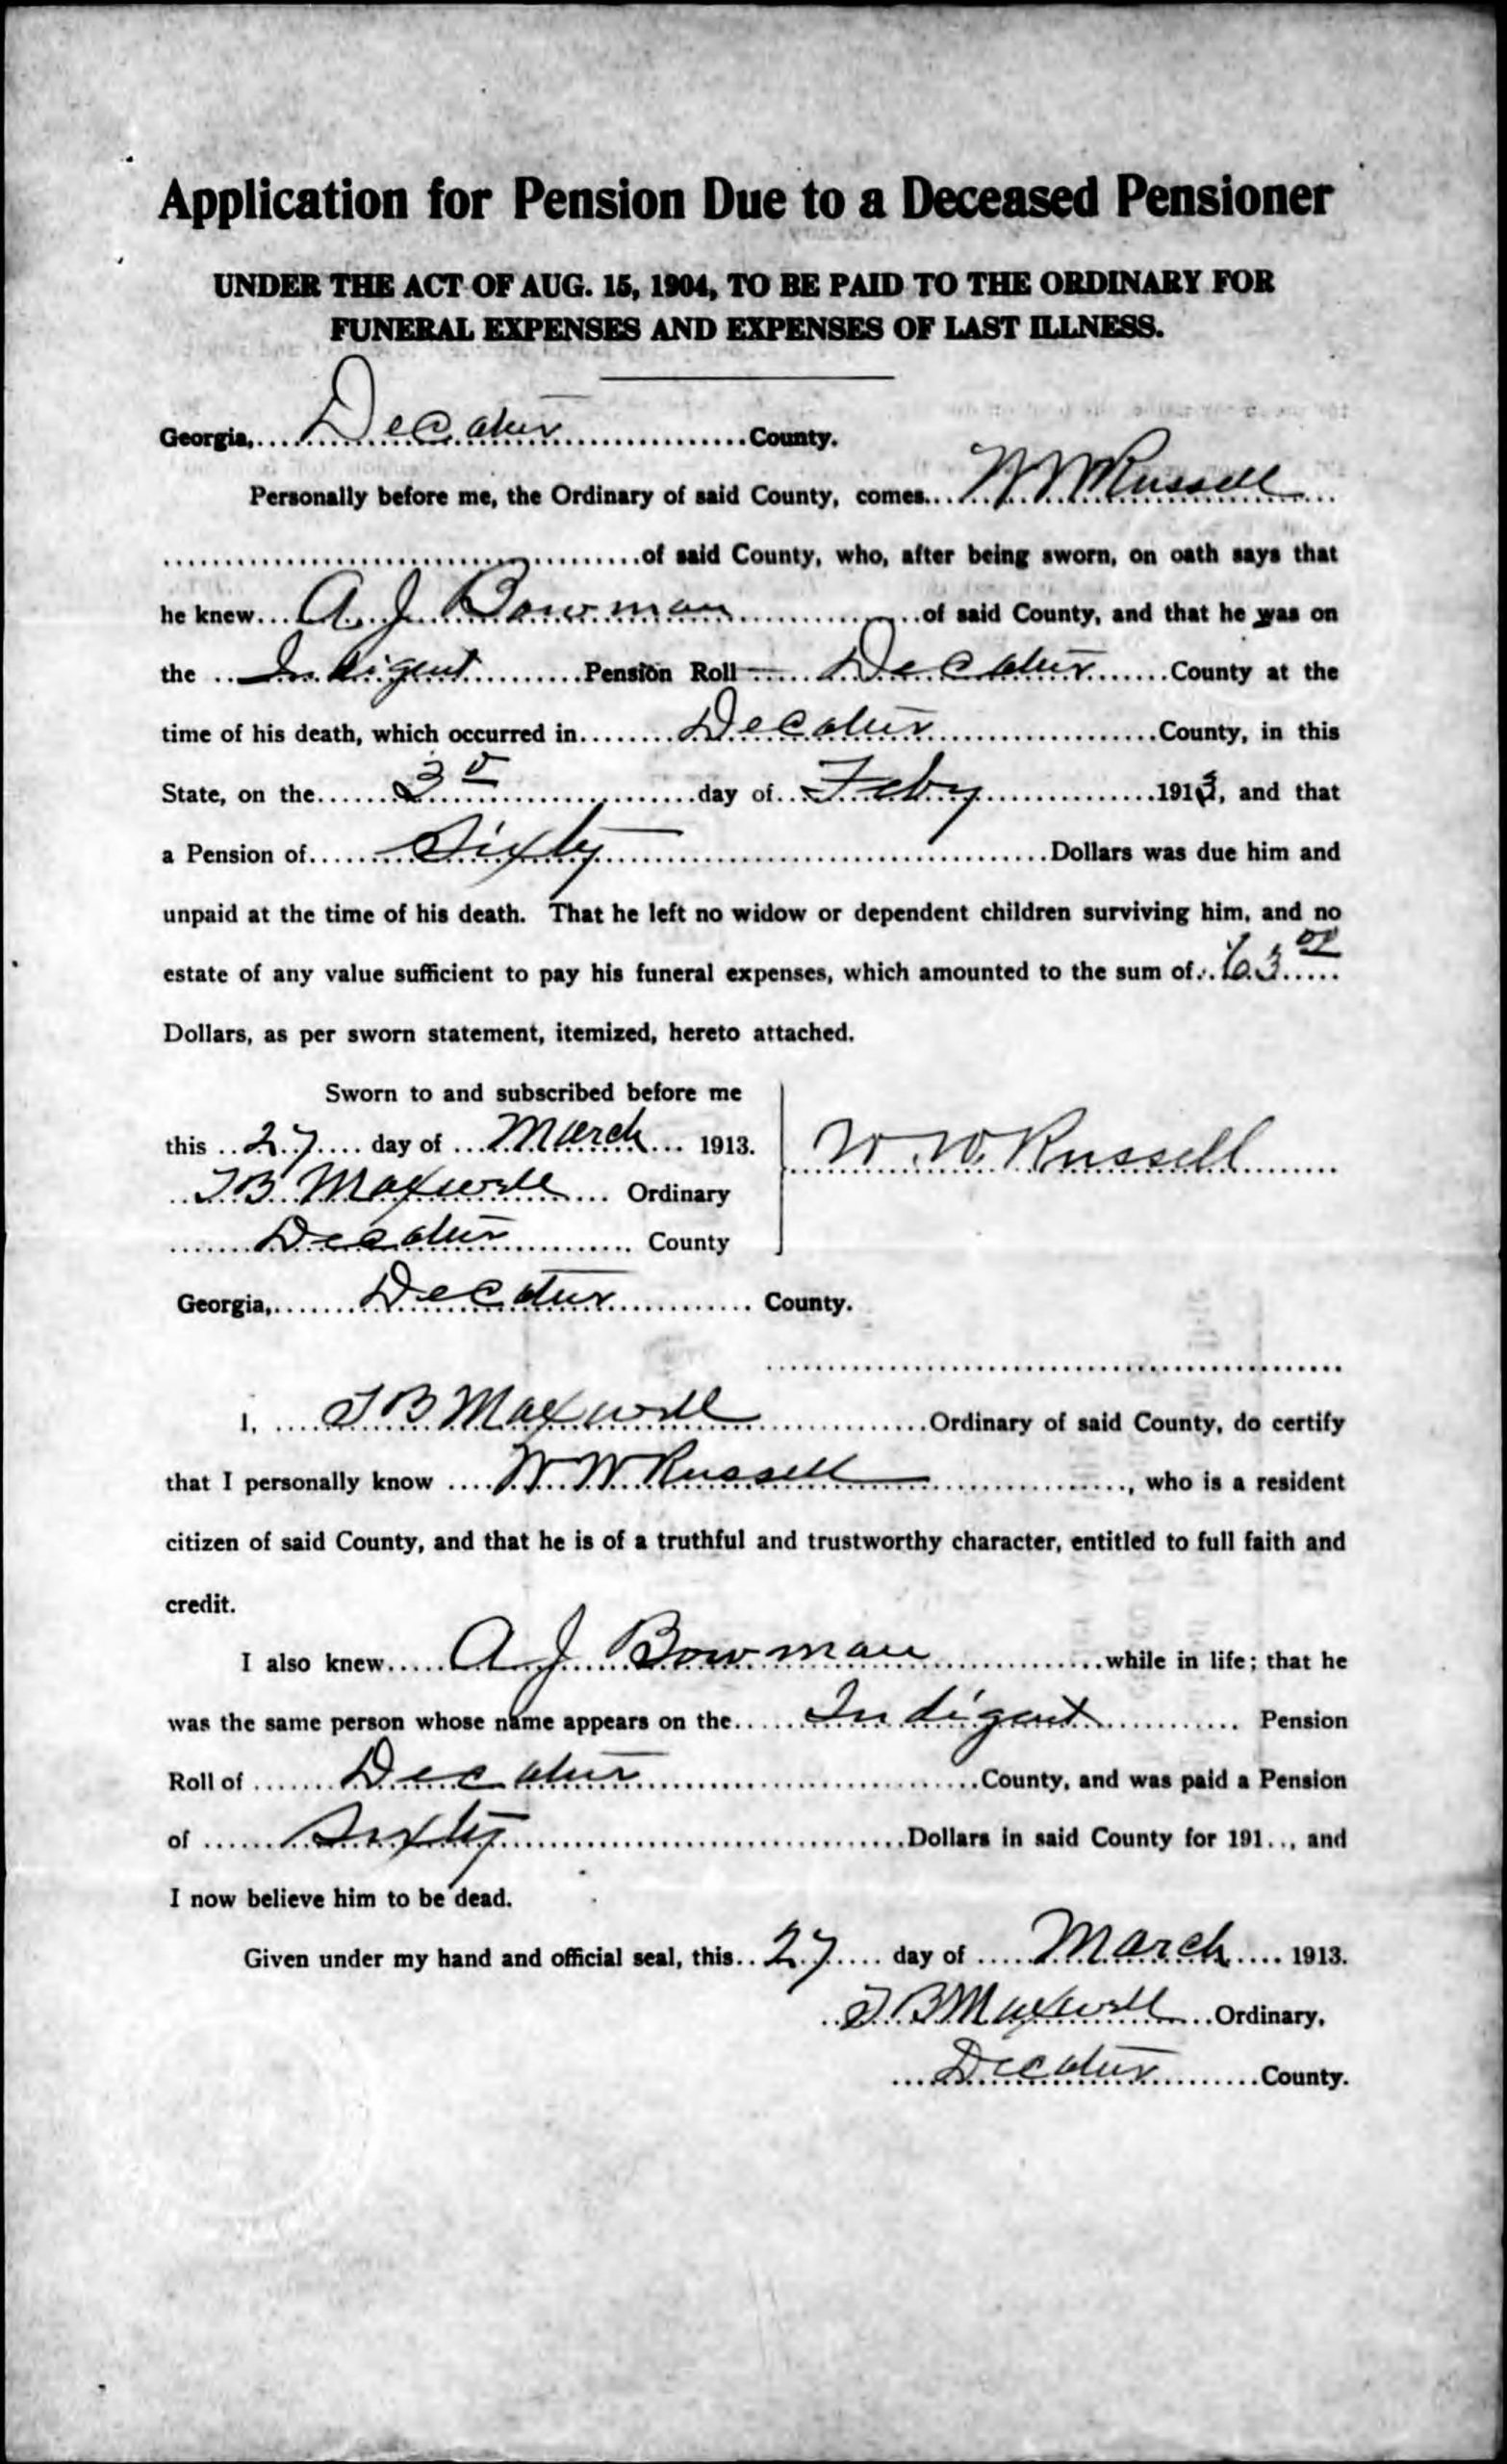 Application for Pension Due to a Deceased Pensioner
UNDER THE ACT OF AUG. 15, 1904, TO BE PAID TO THE ORDINARY FOR
FUNERAL EXPENSES AND EXPENSES OF LAST ILLNESS.
Georgia, Decatur County.
Personally before me, the Ordinary of said County, comes W W Russell
of said County, who, after being sworn, on oath says that
he knew A. J. Bowman of said County, and that he was on
the Indigent Pension Roll Decatur County at the
time of his death, which occurred in Decatur County, in this
State, on the 3d day of Feby 1913, and that
a Pension of Sixty Dollars was due him and
unpaid at the time of his death. That he left no widow or dependent children surviving him, and no
estate of any value sufficient to pay his funeral expenses, which amounted to the sum of 63 00
Dollars, as per sworn statement, itemized, hereto attached.
Sworn to and subscribed before me
this 27 day of March 1913.
W. W. Russell
T B Maxwell Ordinary
Decatur County
Georgia, Decatur County.
I, T B Maxwell Ordinary of said County, do certify
that I personally know W W Russell, who is a resident
citizen of said County, and that he is of a truthful and trustworthy character, entitled to full faith and
credit.
I also knew A J Bowman while in life; that he
was the same person whose name appears on the Indigent Pension
Roll of Decatur County, and was paid a Pension
of Sixty Dollars in said County for 191.., and
I now believe him to be dead.
Given under my hand and official seal, this 27 day of March 1913.
T B Maxwell Ordinary,
Decatur County.